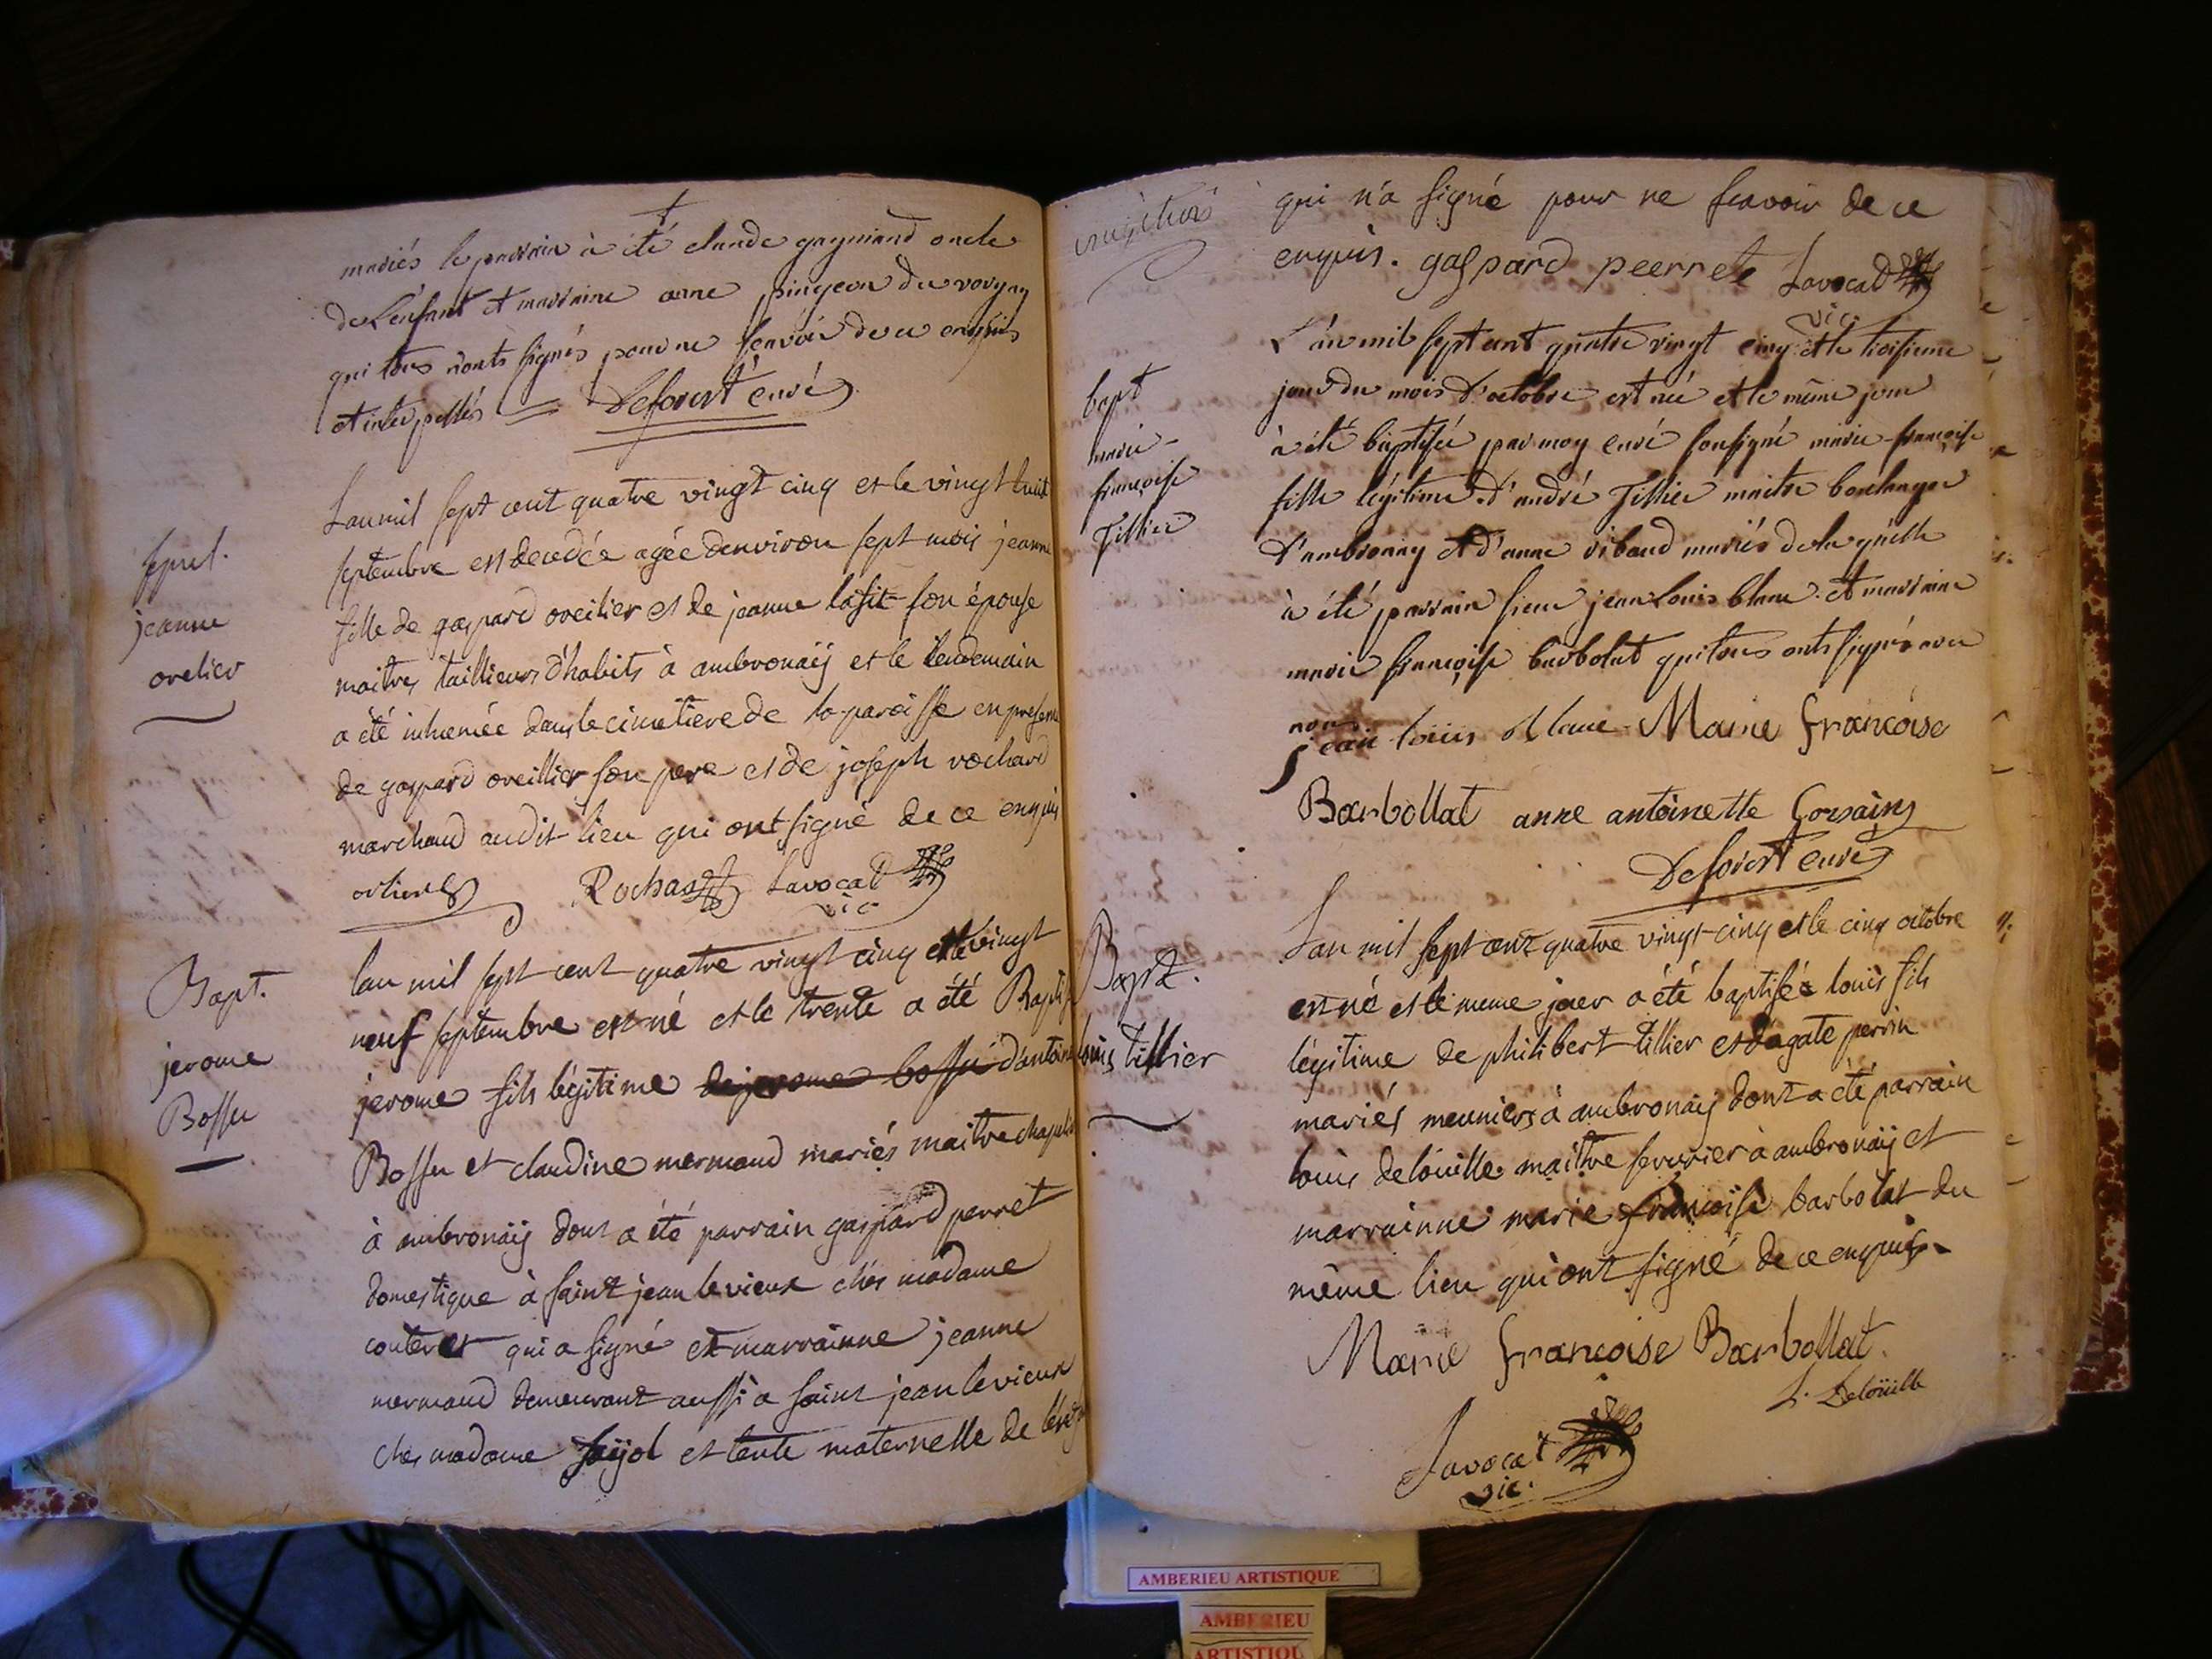 mariés le parrain à été claude gaymand oncle
de L'enfant et marraine anne pingeon du
qui tous n'onts signés pour ne scavoir de ce enquis
et interpellés Deforest curé
sepul.
jeanne
orelier
Lan mil sept cent quatre vingt cinq et le vingt huit
septembre est decedée agée denviron sept mois jeanne
fille de gaspard oreilier et de jeanne lafit son épouse
maitres taillieurs d'habits à ambronaÿ et le lendemain
a été inhumée dans le cimetiere de la paroisse en presence
de gaspard oreillier son pere et de joseph rochard
marchand audit lieu qui ont signé de ce enquis
orlier Rochas Lavocat
vic
Bapt.
jerome
Bossu
lan mil sept cent quatre vingt cinq et le vingt
neuf septembre est né et le trente a été Baptisé
jerome fils légitime de jerome bossu d'antoine
Bossu et claudine mermand mariés maitre
à ambronaÿ dont a été parrain gaspard perret
domestique à saint jean le vieux chés madame
qui a signé et marrainne jeanne
mermand demeurant aussi a saint jean le vieux
chés madame et tente maternelle de
qui n'a signé pour ne scavoir de ce
enquis. gaspard peerrete Lavocat
vic.
bapt
marie-
françoise
Tillier
L'an mil sept cent quatre vingt cinq et le troisieme
jour du mois d'octobre est née et le même jour
à été baptisée par moy curé soussigné marie-françoise
fille légitime d'andré Tillier maitre boulanger
d'ambronay et d'anne ribaud mariés de laquelle
à été parrain sieur jean Louis blanc et marraine
marie françoise barbolat qui tous onts signés avec
nous
jean loüis blanc Marie francoise
Barbollat anne antoinette Gorsain
Deforest curé
Bapt.
louis tillier
Lan mil sept cent quatre vingt cinq et le cinq octobre
est né et le meme jour a été baptisée louis fils
légitime de philibert tillier et d'agate perrin
mariés meuniers à ambronaÿ dont a été parrain
louis deloüille maitre serrurier à ambronaÿ et
marrainne marie françoise barbolat du
même lieu qui ont signé de ce enquis.
Marie francoise Barbollat.
L. Deloüille
Lavocat
vic.
AMBERIEU ARTISTIQUE
AMBERIEU
ARTISTIQU